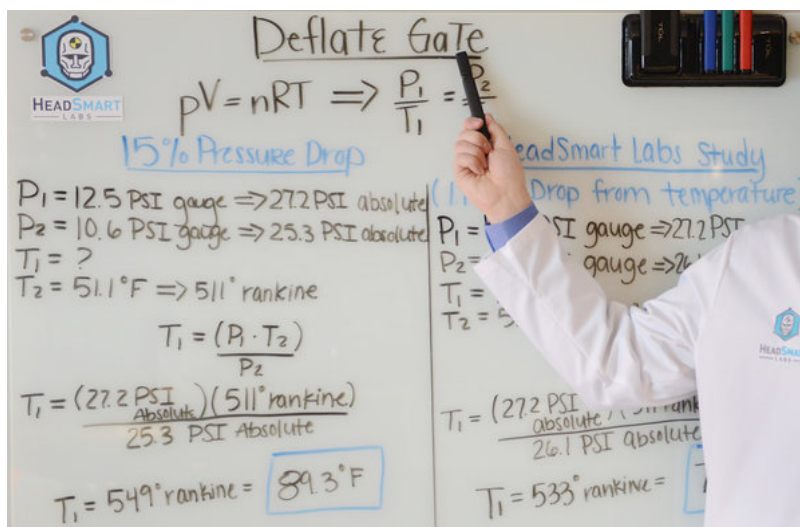 Deflate GaTe
HEADSMART
LABS
PV = nRT => P1/T1 = P2
15% Pressure Drop
P1 = 12.5 PSI gauge => 27.2 PSI absolute
P2 = 10.6 PSI gauge => 25.3 PSI absolute
T1 = ?
T2 = 51.1°F => 511° rankine
T1 = (P1 · T2)
P2
T1 = (27.2 PSI Absolute)(511° rankine)
25.3 PSI Absolute
T1 = 549° rankine = 89.3°F
HeadSmart Labs Study
Drop from temperature)
P1 = PSI gauge => 27.2 PSI
P2 = gauge => 26.
T1 =
T2 =
T1 = (27.2 PSI absolute)
26.1 PSI absolute
T1 = 533° rankine =
HEADSM
LABS